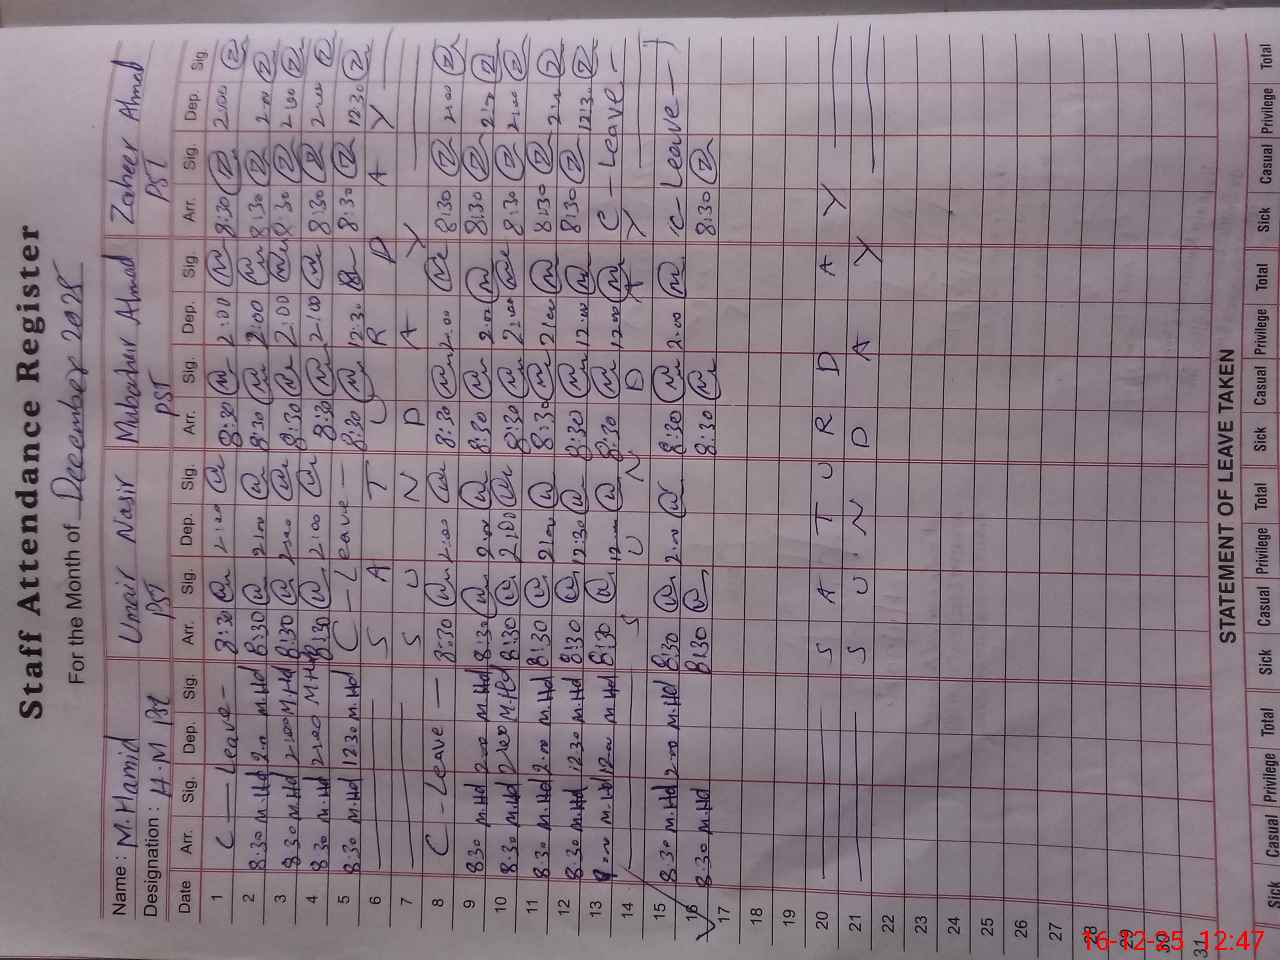 Staff Attendance Register
For the Month of December 2025
Name : M. Hamid Umair Nasir Mubasher Ahmad Zaheer Ahmad
Designation : H.M PST PST PST
Date Arr. Sig. Dep. Sig. Arr. Sig. Dep. Sig. Arr. Sig. Dep. Sig. Arr. Sig. Dep. Sig.
1 C — Leave — 8:30 2:00 8:30 2:00 8:30 2:00
2 8:30 M.Hd 2:00 M.Hd 8:30 2:00 8:30 2:00 8:30 2:00
3 8:30 M.Hd 2:00 M.Hd 8:30 2:00 8:30 2:00 8:30 2:00
4 8:30 M.Hd 2:00 M.Hd 8:30 2:00 8:30 2:00 8:30 2:00
5 8:30 M.Hd 12:30 M.Hd C — Leave — 8:30 12:30 8:30 12:30
6 S A T U R D A Y
7 S U N D A Y
8 C - Leave — 8:30 2:00 8:30 2:00 8:30 2:00
9 8:30 M.Hd 2:00 M.Hd 8:30 2:00 8:30 2:00 8:30 2:00
10 8:30 M.Hd 2:00 M.Hd 8:30 2:00 8:30 2:00 8:30 2:00
11 8:30 M.Hd 2:00 M.Hd 8:30 2:00 8:30 2:00 8:30 2:00
12 8:30 M.Hd 12:30 M.Hd 8:30 12:30 8:30 12:00 8:30 12:30
13 M.Hd 12:00 M.Hd 8:30 12:00 8:30 12:00 C - Leave -
14 S U N D A Y
15 8:30 M.Hd 2:00 M.Hd 8:30 2:00 8:30 2:00 C - Leave —
16 8:30 M.Hd 8:30 8:30 8:30
17
18
19
20 S A T U R D A Y
21 S U N D A Y
22
23
24
25
26
27
28
29
30
31
STATEMENT OF LEAVE TAKEN
Sick Casual Privilege Total Sick Casual Privilege Total Sick Casual Privilege Total Sick Casual Privilege Total
16-12-25 12:47